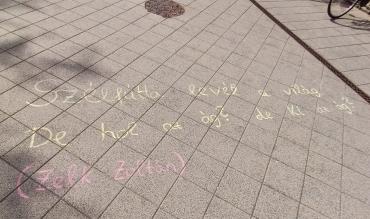 Szélfútta levél a világ
De hol az ág? de ki az ág?
(Zelk Zoltán)